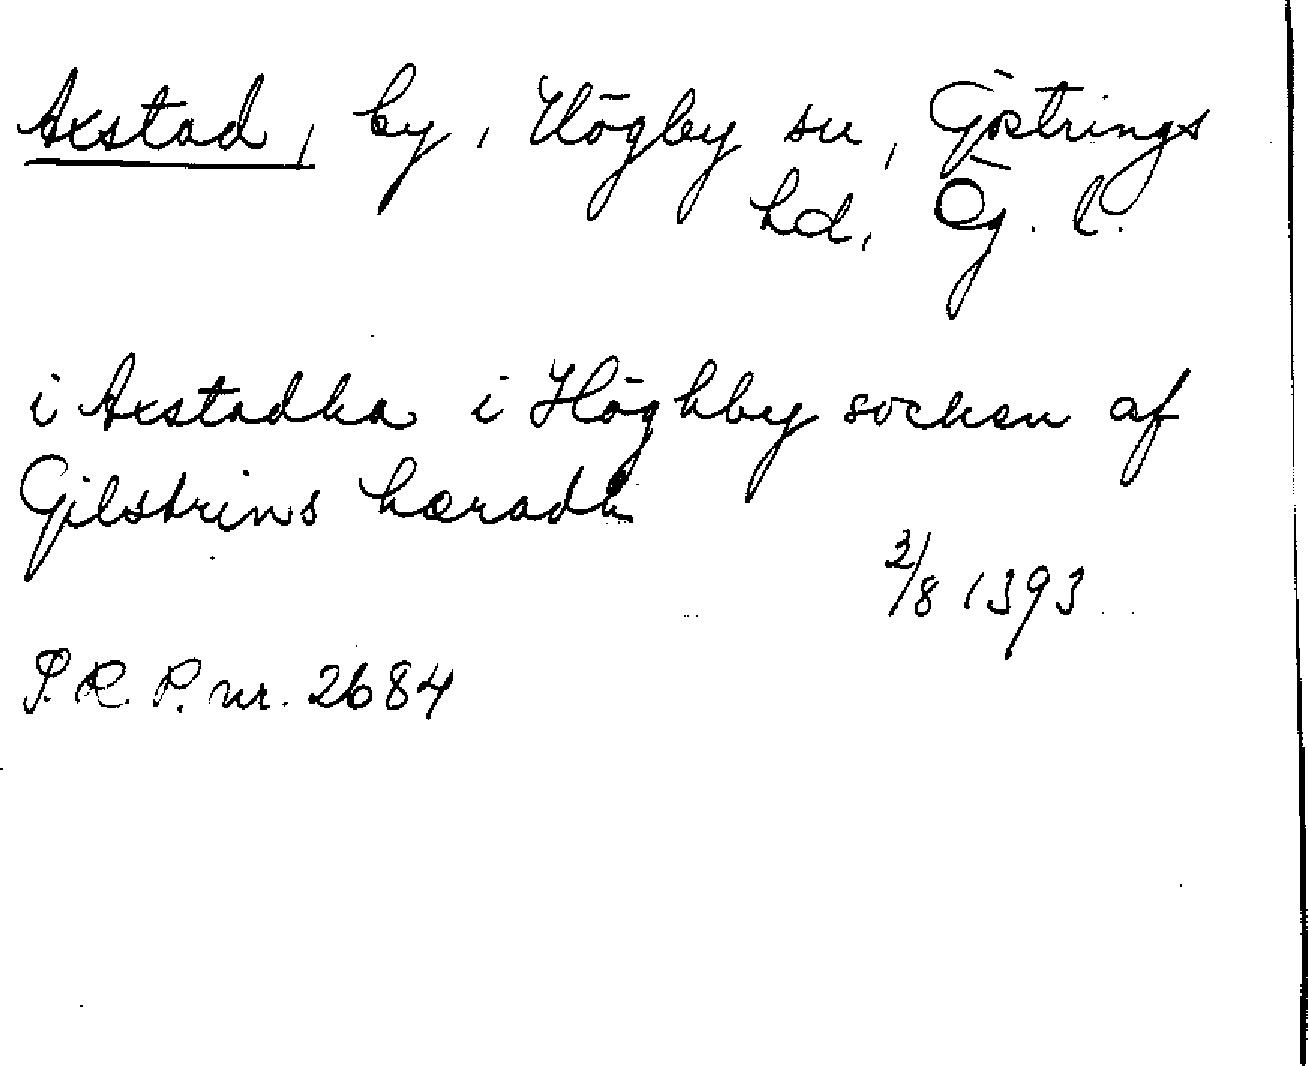 Axstad, by, Högby sn, Göstrings
hd, Ög. l.
i Axstadha i Höghby socken af
Gilstrins hæradh
2/8 1393
S.R.P. nr. 2684